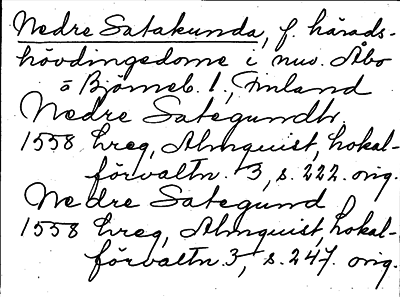 Nedre Satakunda, f. härads-
hövdingedöme i nuv. Åbo
o Björneb. l., Finland
Nedre Sategundh
1558 Lreg, Almquist, Lokal-
förvaltn. 3, s. 222. orig.
Nedre Sategund
1558 Lreg, Almquist, Lokal-
förvaltn. 3, s. 247. orig.